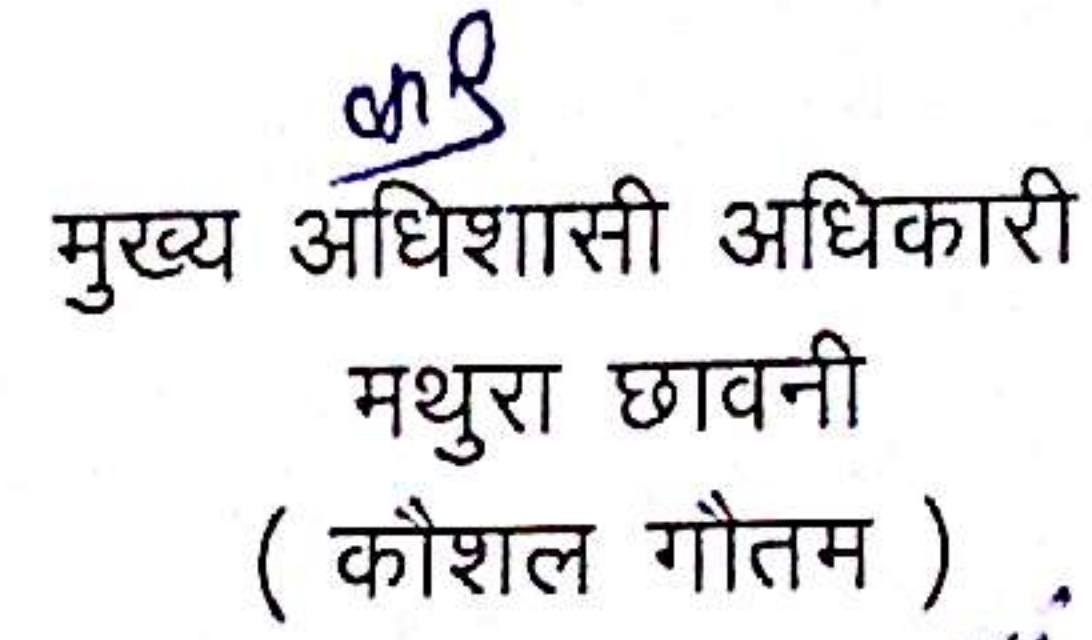 मुख्य अधिशासी अधिकारी
मथुरा छावनी
( कौशल गौतम )